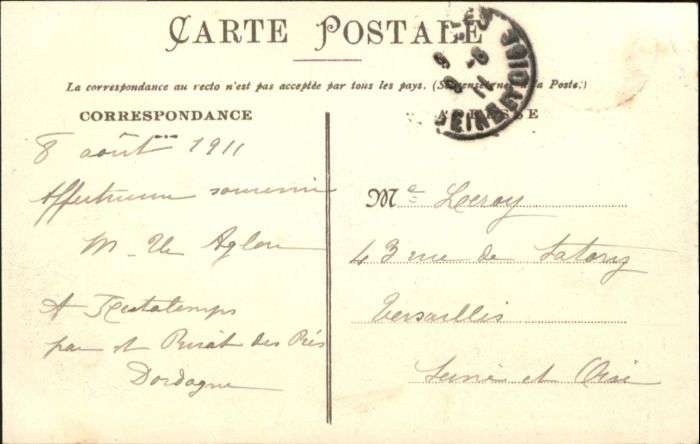 CARTE POSTALE
La correspondance au recto n'est pas acceptée par tous les pays. (Se renseigner à la Poste.)
CORRESPONDANCE
ADRESSE
8 août 1911
Affectueux souvenir
M
A
par St des Prés
Dordogne
Me Leroy
43 rue de Satory
Versailles
Seine et Oise
SEINE ET OISE